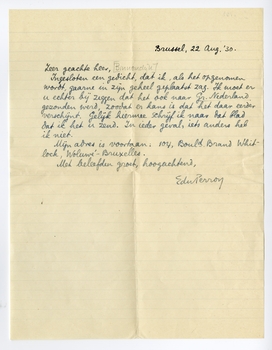 Brussel, 22 Aug. '30.
Zeer geachte heer,
Ingesloten een gedicht, dat ik, als het opgenomen
wordt, gaarne in zijn geheel geplaatst zag. Ik moet er
u echter bij zeggen dat het ook naar Gr. Nederland
gezonden werd, zoodat er kans is dat het daar eerder
verschijnt. Gelijk hiermee schrijf ik naar het blad
dat ik het u zend. In ieder geval: iets anders heb
ik niet.
Mijn adres is voortaan: 104, Bould Brand Whit-
lock, Woluwé-Bruxelles.
Met beleefden groet, hoogachtend,
EduPerron